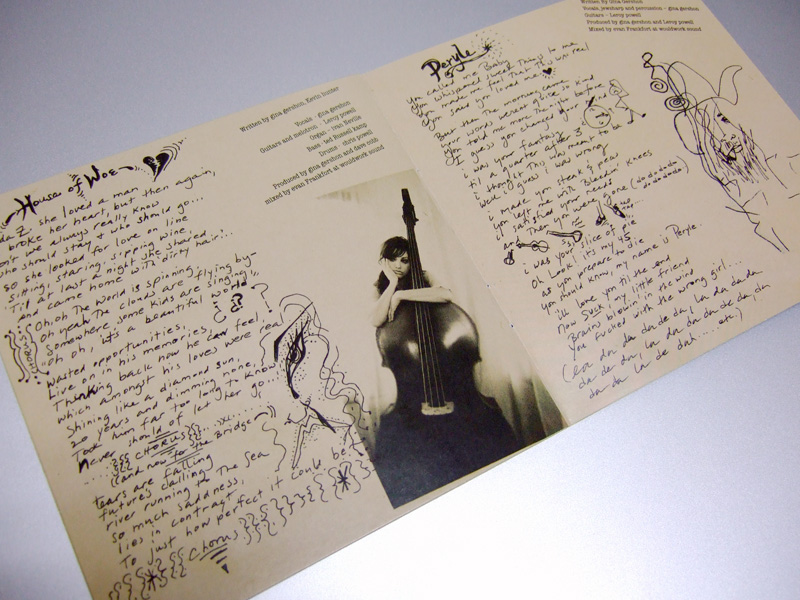 Written by gina gershon, Kevin hunter
Vocals - gina gershon
Guitars and melotron - Leroy powell
Organ - ivan Neville
Bass - ted Russell kamp
Drums - chris powell
Produced by gina gershon and dave cobb
mixed by evan Frankfort at wouldwork sound
House of Woe
she loved a man
broke her heart, but then again,
don't we always really know
who should stay & who should go...
So she looked for love on line
Sitting, staring, sipping wine
Til at last a night she shared
and came home with dirty hair...
Oh, oh The world is spinning
oh yeah The clouds are flying by-
Somewhere some kids are singing,
"oh oh, it's a beautiful world"
CHORUS
wasted opportunities,
Live on in his memories,
Thinking back now he can feel,
which amongst his loves were real
Shining like a diamond sun,
20 years and dimming none,
Took him far too long to know
Never should of let her go...
CHORUS
(and now for the Bridge)
tears are falling
future's calling
river running to The Sea
so much sadness,
lies in contract
To just how perfect it could be
Chorus
Written by Gina Gershon
Vocals, jewsharp and percussion - gina gershon
Guitars - Leroy powell
Produced by gina gershon and Leroy powell
Mixed by evan Frankfort at wouldwork sound
Peryle
You called me Baby
You whispered sweet Things to me
You made me feel That I was real
You said you loved me
But Then The morning came
Your words weren't quite so kind
You told me more The night before
I guess you changed your
i was your fantasy
til a quarter after 3
i thought This was meant to be
Well i guess i was wrong
i made you steak & peas
You left me with Bleedin' Knees
i satisfied your needs
and Then you were gone (do do do do do do do do)
i was your slice of pie
Oh Look! it's my 45
as you prepare to die
You should know, my name is Peryle.
i'll love you til the end
Now suck my little friend
Brains blowin' in the wind
You fucked with the wrong girl....
(La da da da de da, la da da da
da de da, la da da da da de da, da
da da la de dah.... etc)